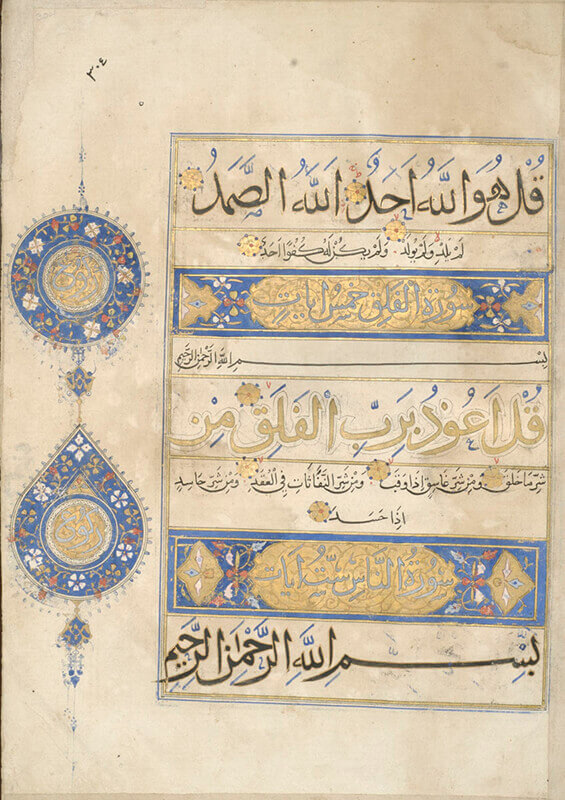 ٣٠٤
قُلْ هُوَ اللَّهُ اَحَدٌ اللَّهُ الصَّمَدُ
لَمْ يَلِدْ وَلَمْ يُولَدْ وَلَمْ يَكُنْ لَهُ كُفُوًا اَحَدٌ
سورة الفلق خمس ايات
بسم الله الرحمن الرحيم
قُلْ اَعُوذُ بِرَبِّ الْفَلَقِ مِنْ
شَرِّ مَا خَلَقَ وَمِنْ شَرِّ غَاسِقٍ اِذَا وَقَبَ وَمِنْ شَرِّ النَّفَّاثَاتِ فِي الْعُقَدِ وَمِنْ شَرِّ حَاسِدٍ
اِذَا حَسَدَ
سورة الناس ست ايات
بِسْمِ اللَّهِ الرَّحْمٰنِ الرَّحِيمِ